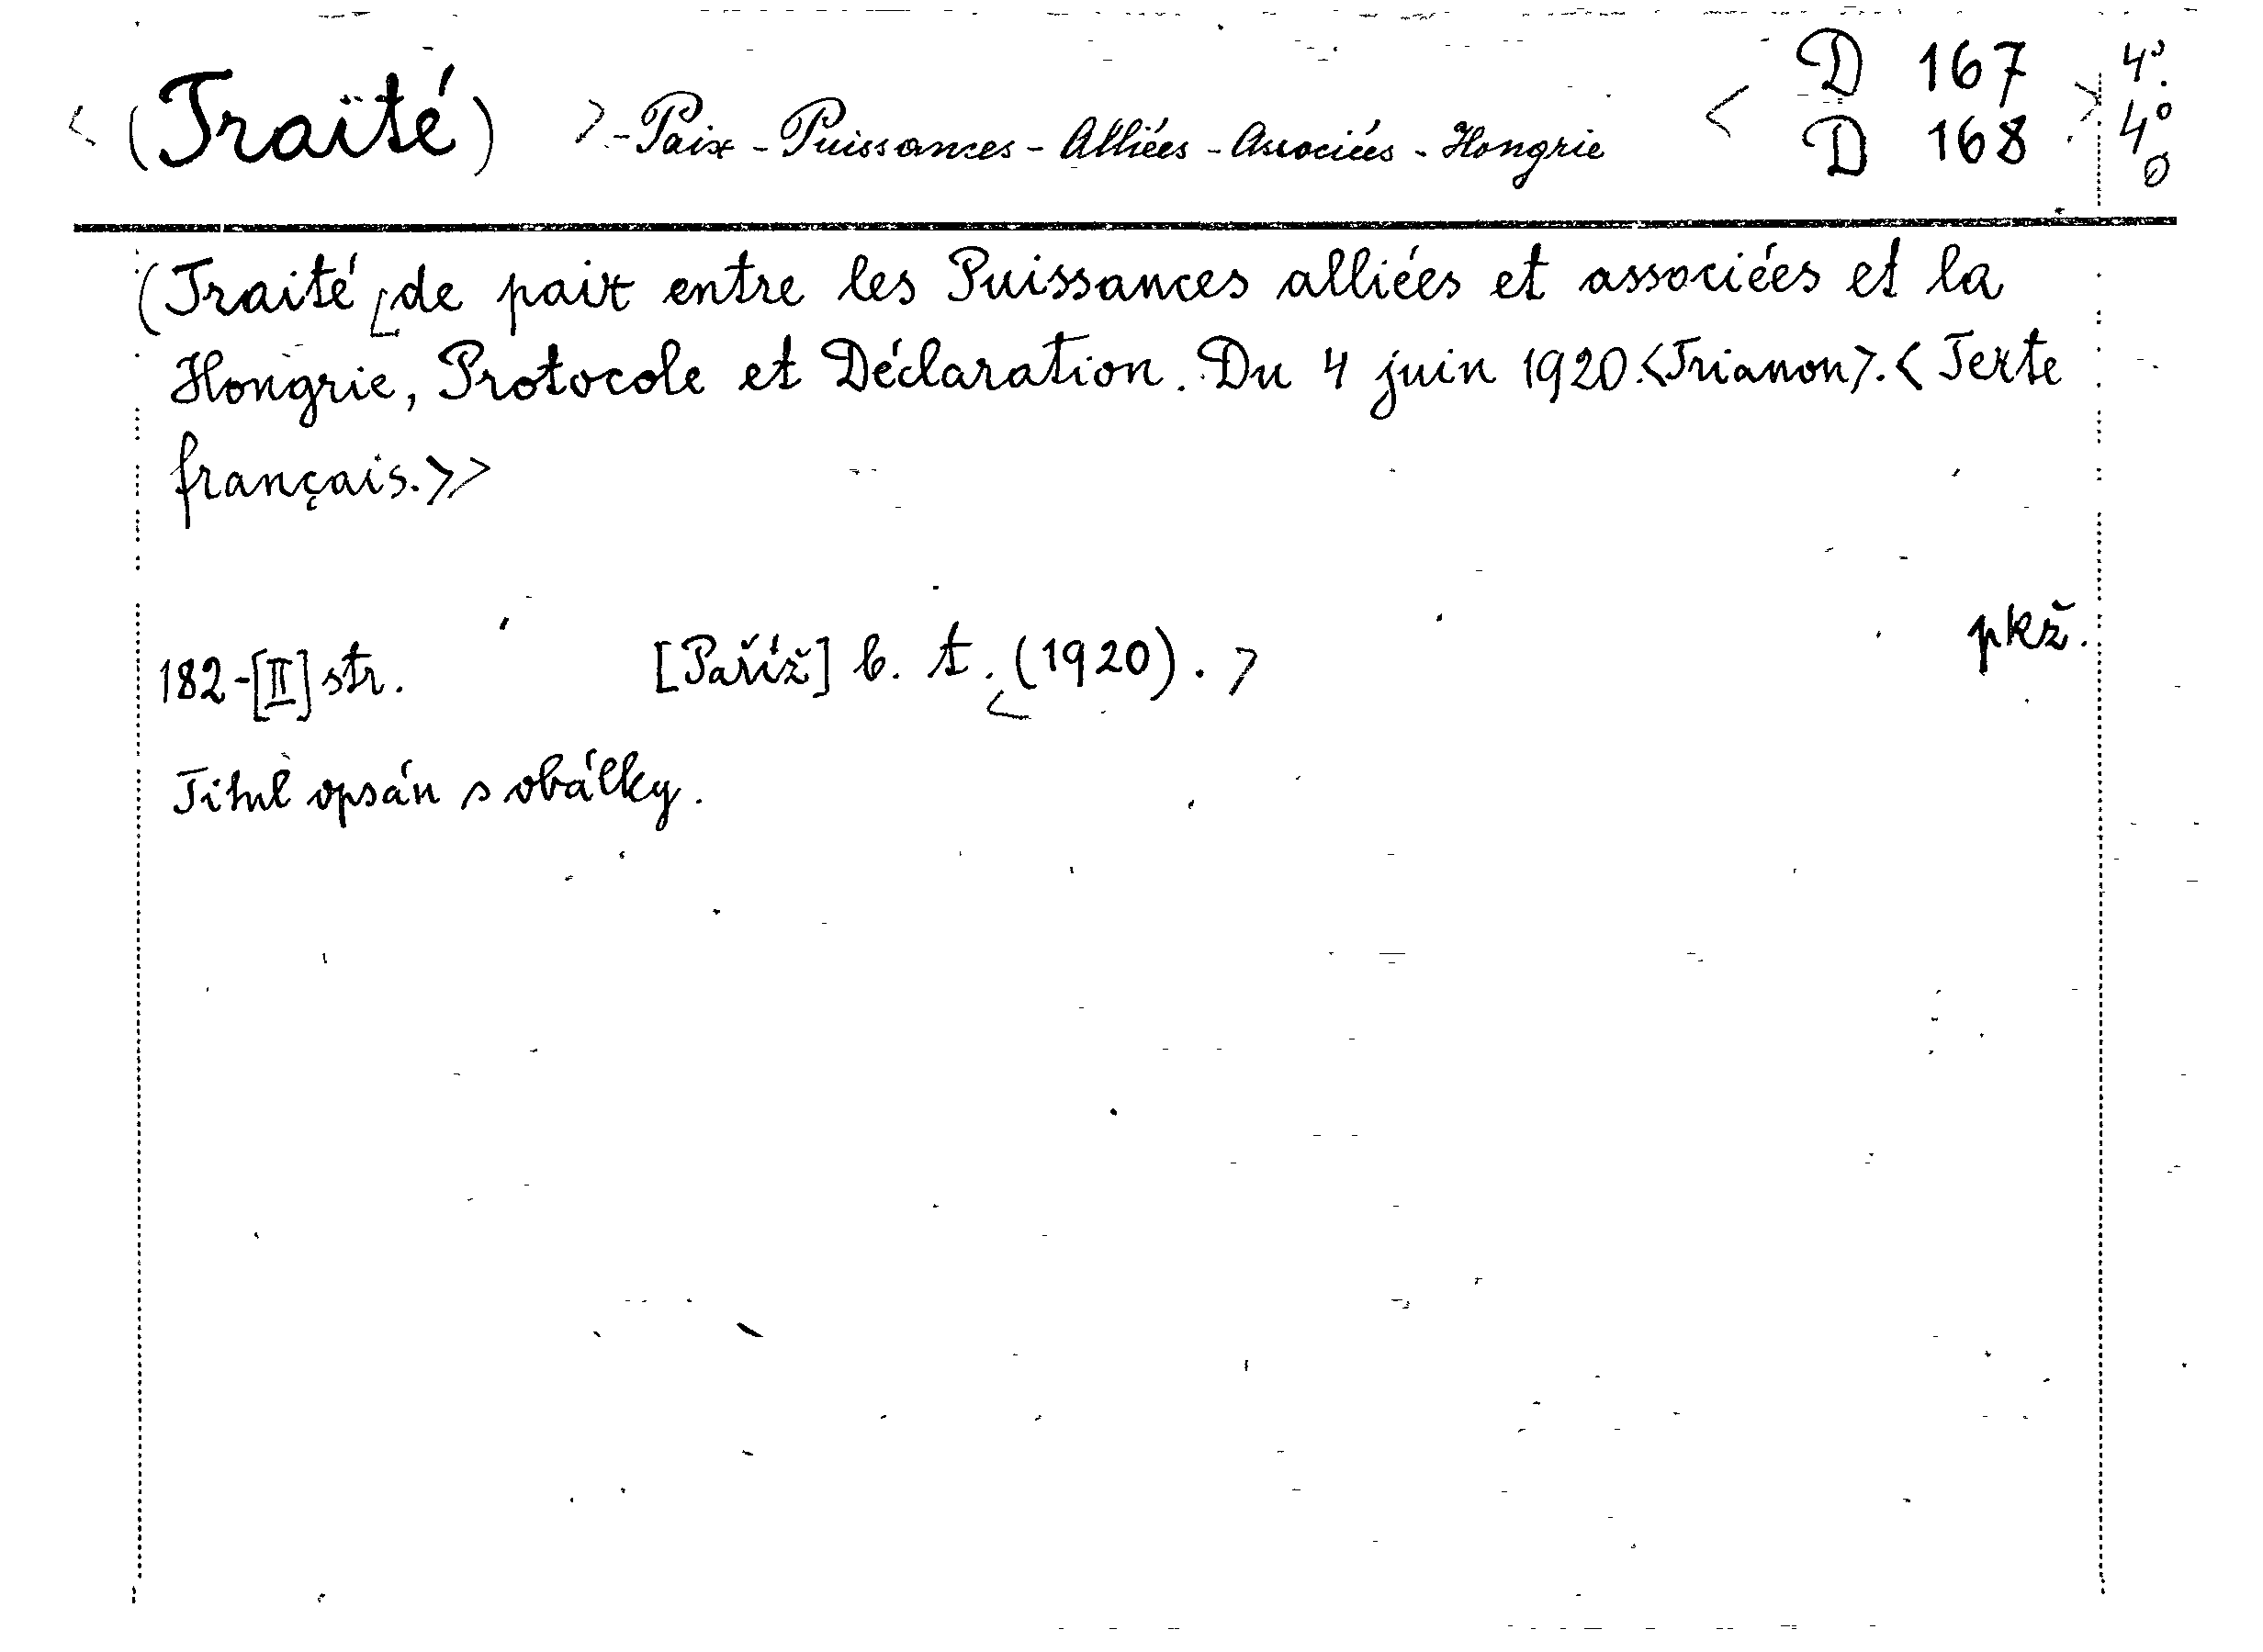 <(Traité) >-Paix-Puissances-Alliées-Associées-Hongrie < D 167 > 4°.
D 168 4°
(Traité <de paix entre les Puissances alliées et associées et la
Hongrie, Protocole et Déclaration. Du 4 juin 1920.<Trianon>.< Texte
français.>>
pkž.
182-[II] str. [Paříž] b. t. <(1920). >
Titul opsán s obálky.